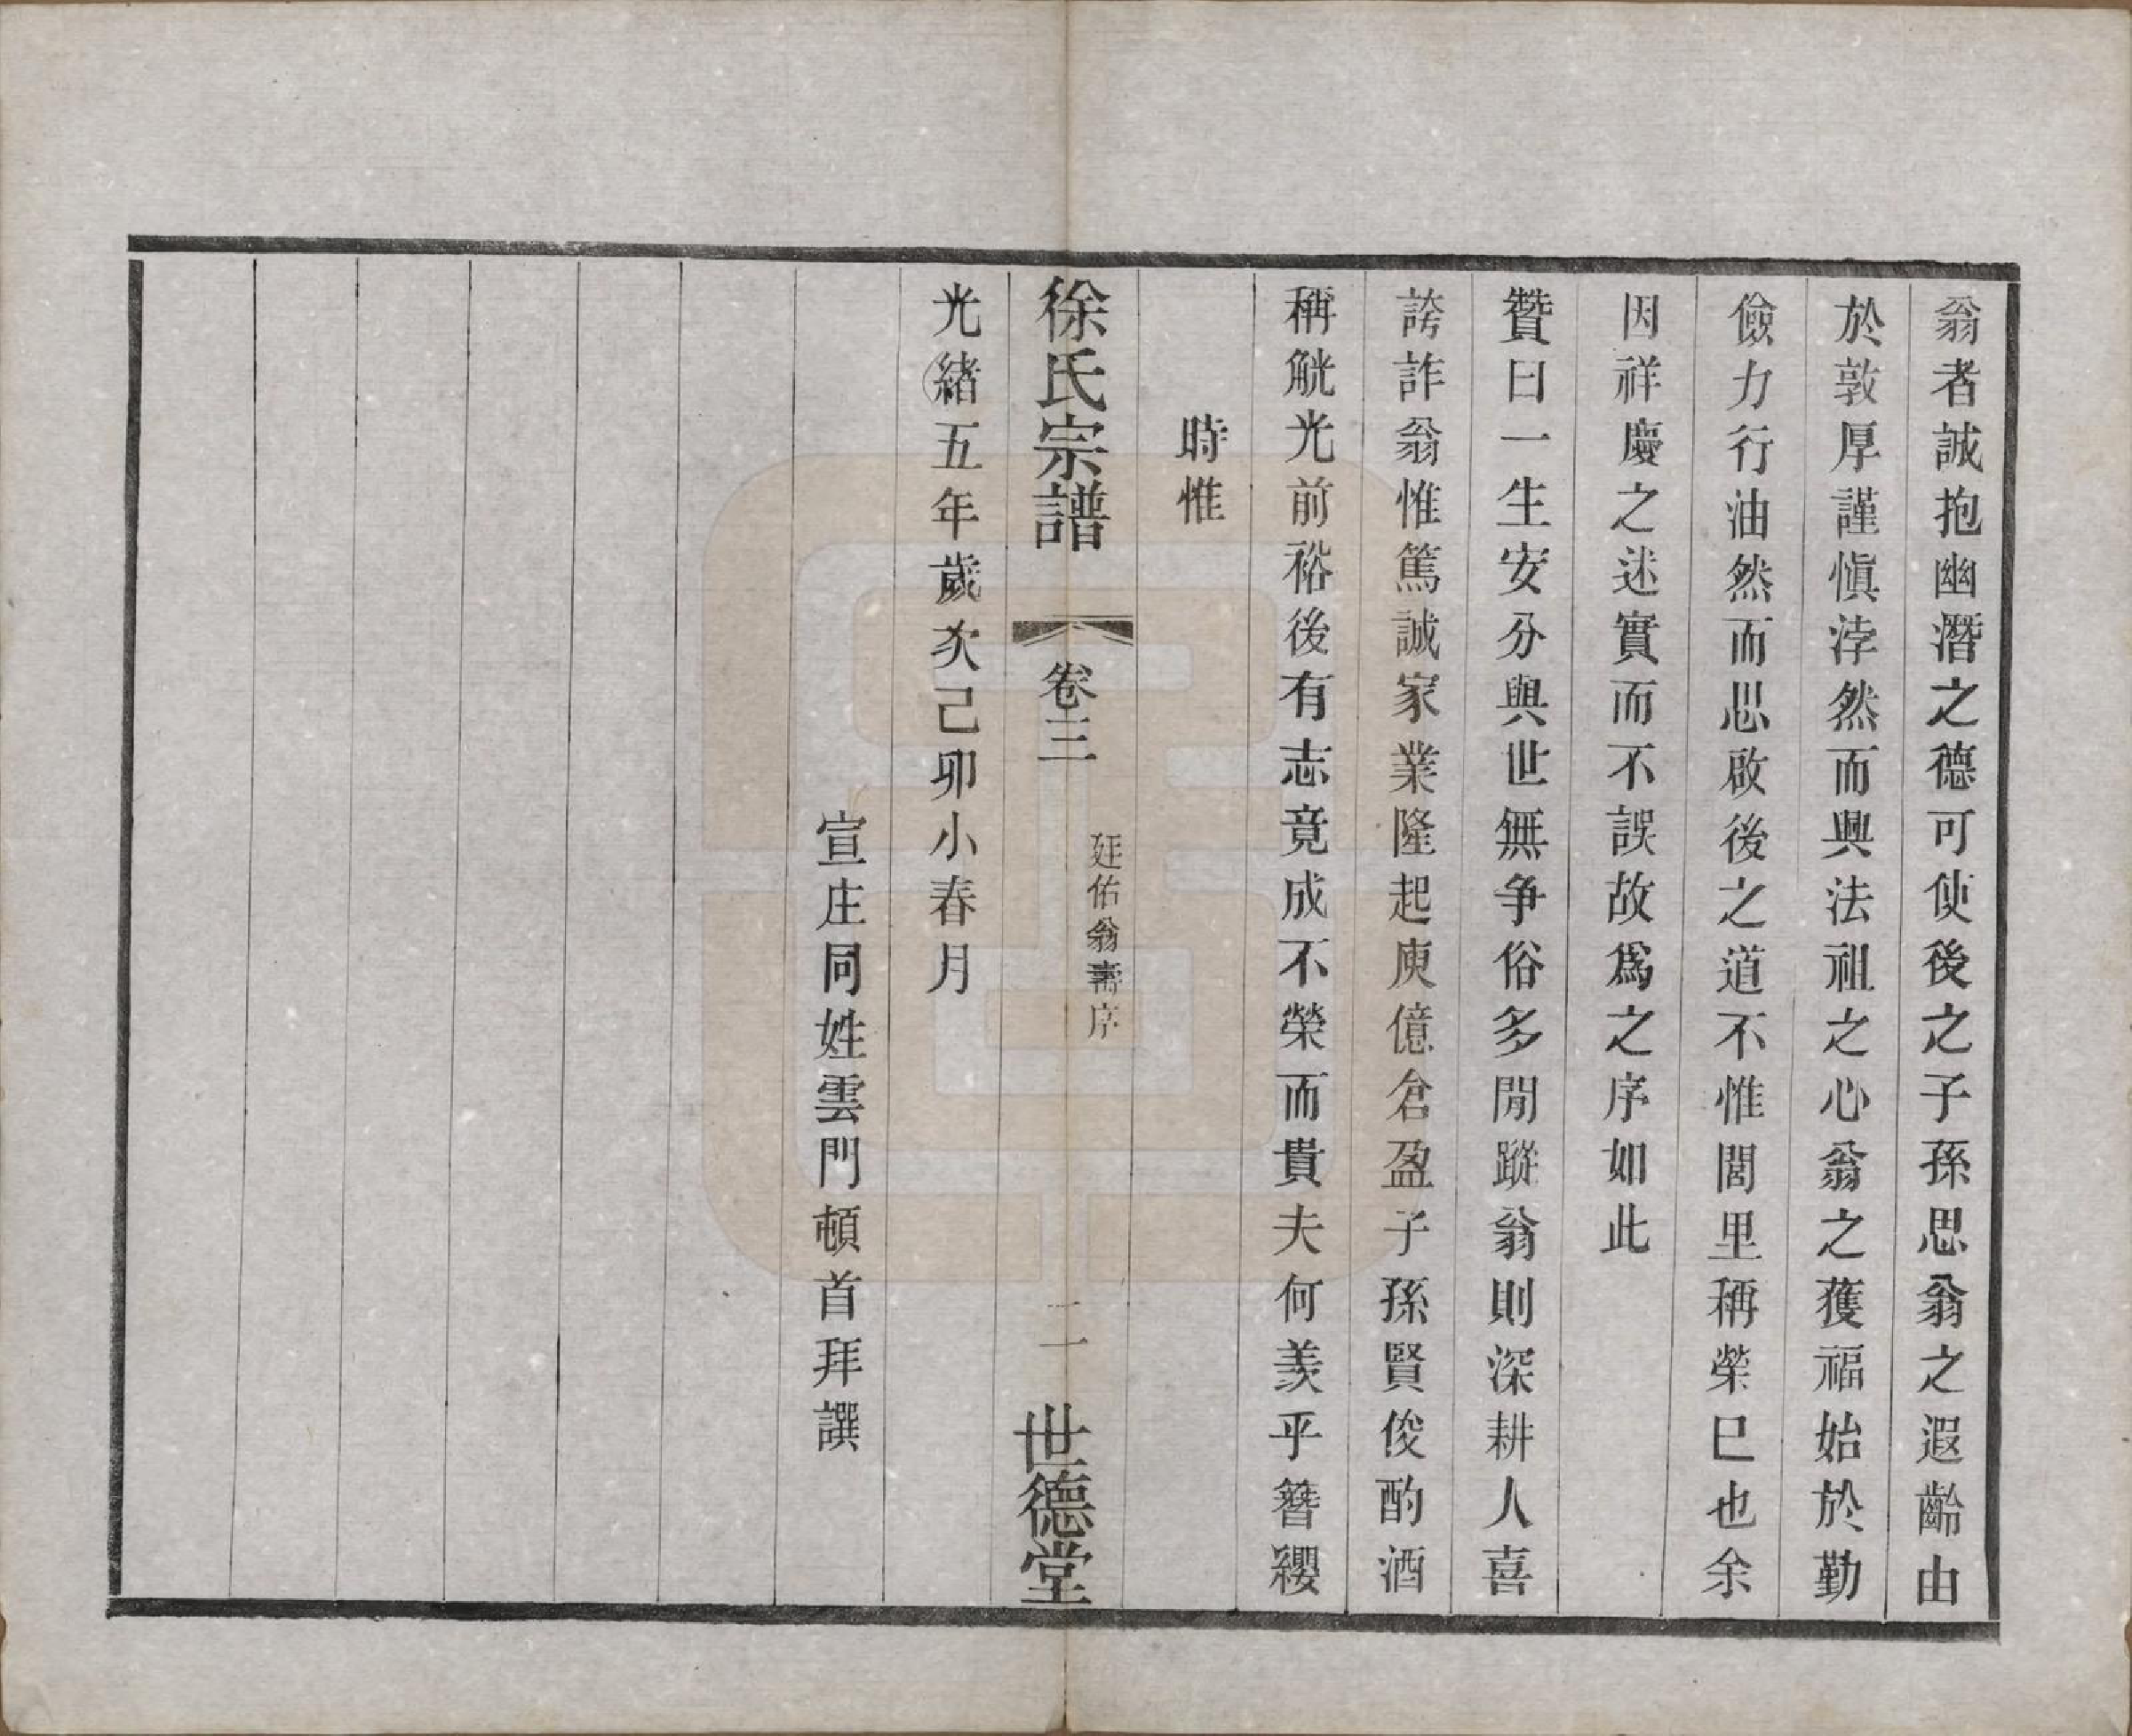 翁者誠抱幽潛之德可使後之子孫思翁之遐齡由
於敦厚謹愼浡然而興法祖之心翁之獲福始於勤
儉力行油然而思啟後之道不惟閭里稱榮巳也余
因祥慶之迷實而不誤故爲之序如此
贊曰一生安分與世無爭俗多閒蹤翁則深耕人喜
誇詐翁惟篤誠家業隆起庾億倉盈子孫賢俊酌酒
稱觥光前裕後有志竟成不榮而貴夫何羨乎簪纓
時惟
徐氏宗譜 卷三 廷佑翁壽序 二 世德堂
光緒五年歲次己卯小春月
宣庄同姓雲門頓首拜譔